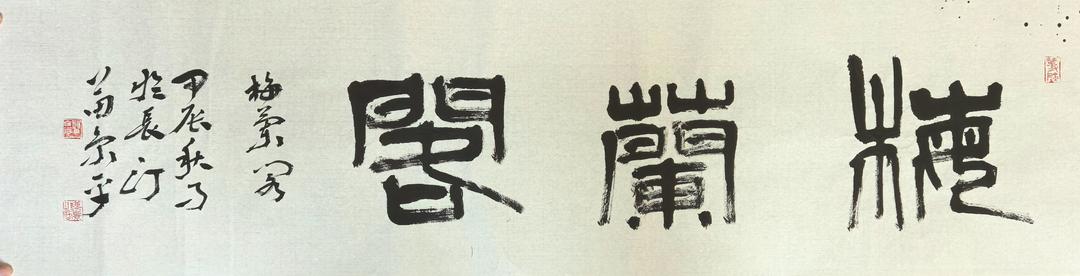 梅蘭閣
梅蘭閣
甲辰秋月
於長汀
尔平